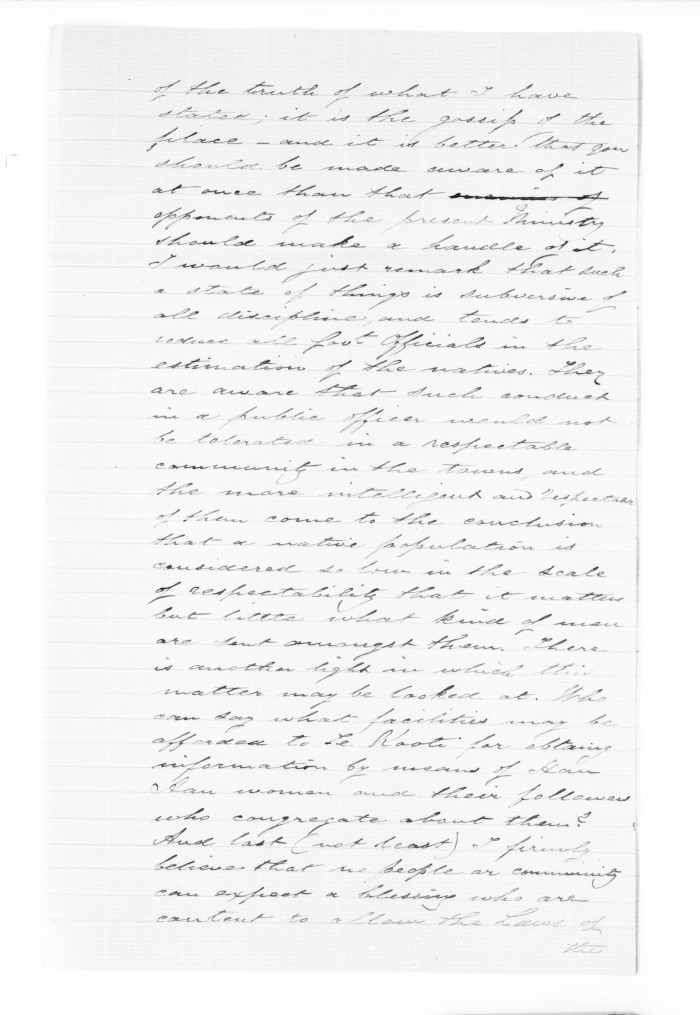 of the truth of what I have
stated; it is the gossip of the
place – and it is better that you
should be made aware of it
at once than that enemies of
opponents of the present Ministry
should make a handle of it.
I would just remark that such
a state of things is subversive of
all discipline, and tends to
reduce all Govt Officials in the
estimation of the natives. They
are aware that such conduct
in a public officer would not
be tolerated in a respectable
community in the towns, and
the more intelligent and respectable
of them come to the conclusion
that a native population is
considered so low in the scale
of respectability that it matters
but little what kind of men
are sent amongst them. There
is another light in which this
matter may be looked at. Who
can say what facilities may be
afforded to Te Kooti for obtaing
information by means of Hau
Hau women and their followers
who congregate about them?
And last (not least) I firmly
believe that no people or community
can expect a blessing who are
content to allow the Laws of
the